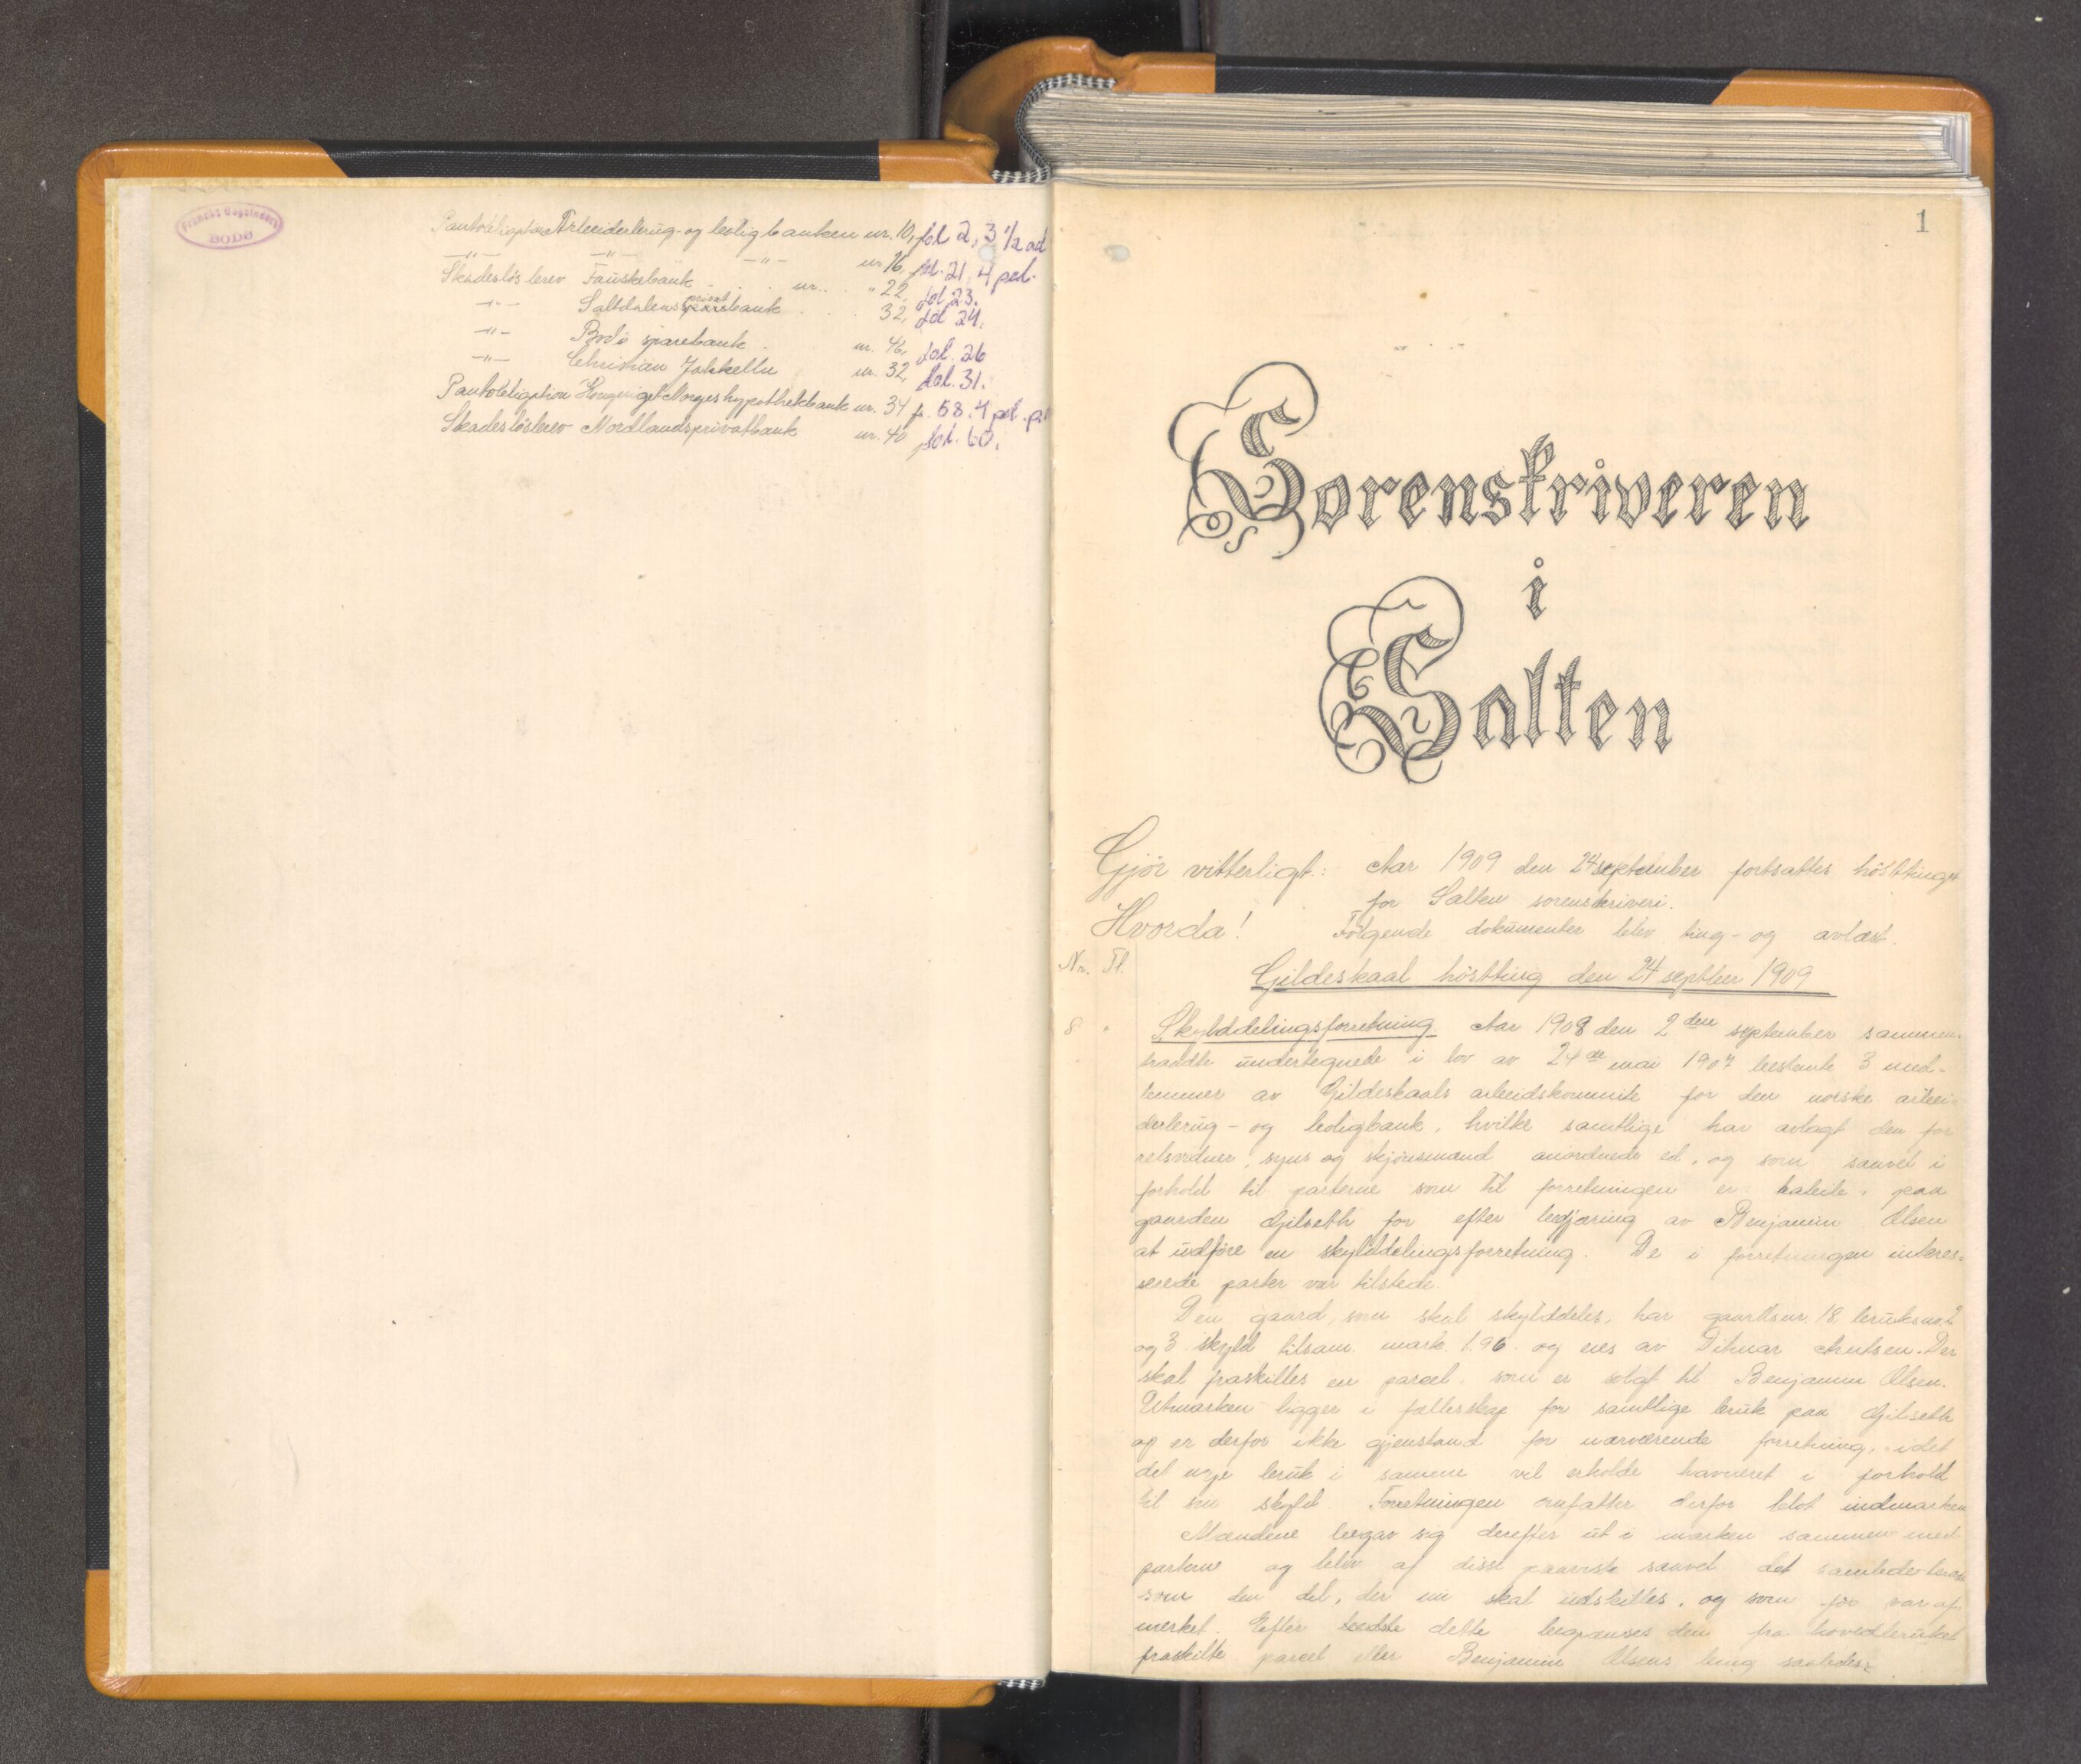 BODØ
Pantobligation Arbeiderbrug- og boligbanken nr. 10, fol 2, 3 1/2 ad
—"— —"— —"— nr 16, fol. 21, 4 pct.
Skadesløsbrev Fauskebank . . nr. . " 22, fol 23.
—"— Saltdalens privatbank . . . 32, fol 24.
—"— Bodø sparebank . nr. 46, fol. 26
—"— Christian Jakhelln nr. 32, fol. 31.
Pantobligation Kongeriget Norges hypothekbank nr. 34 fr. 58. 4 pct. p.
Skadesløsbrev Nordlandsprivatbank nr. 40 fol. 60.
1
Sorenskriveren
i
Salten
Gjør vitterligt: Aar 1909 den 24 september fortsattes høsttinget
for Salten sorenskriveri.
Hvorda! Følgende dokumenter blev ting- og avlæst.
Nr. Fl. Gildeskaal høstting den 24 septber 1909
8 " Skylddelingsforretning. Aar 1908 den 2den september sammen-
traadte undertegnede i lov av 24de mai 1907 bestemte 3 med-
lemmer av Gildeskaals arbeidskomite for den norske arbei-
derbrug- og boligbank, hvilke samtlige har avlagt den for
retsvidner, syns og skjønsmænd anordnede ed, og som saavel i
forhold til parterne som til forretningen er habile, paa
gaarden Gilseth for efter begjæring av Benjamin Olsen
at udføre en skylddelingsforretning. De i forretningen interes-
serede parter var tilstede.
Den gaard, som skal skylddeles, har gaardsnr. 18 bruksnr. 2
og 3 skyld tilsam. mark. 1.96 og eies av Ditmar Antsen. Der
skal fraskilles en parcel, som er solgt til Benjamin Olsen.
Utmarken ligger i fællesskap for samtlige bruk paa Gilseth
og er derfor ikke gjenstand for nærværende forretning, idet
det nye bruk i samme vil erholde havneret i forhold
til sin skyld. Forretningen omfatter derfor blot indmarken
Mændene begav sig derefter ut i marken sammen med
parterne og blev af disse paavist saavel det samlede bruk
som den del, der nu skal udskilles, og som før var af-
merket. Efter dette begrænses den fra hovedbruket
fraskilte parcel eller Benjamin Olsens brug saaledes: